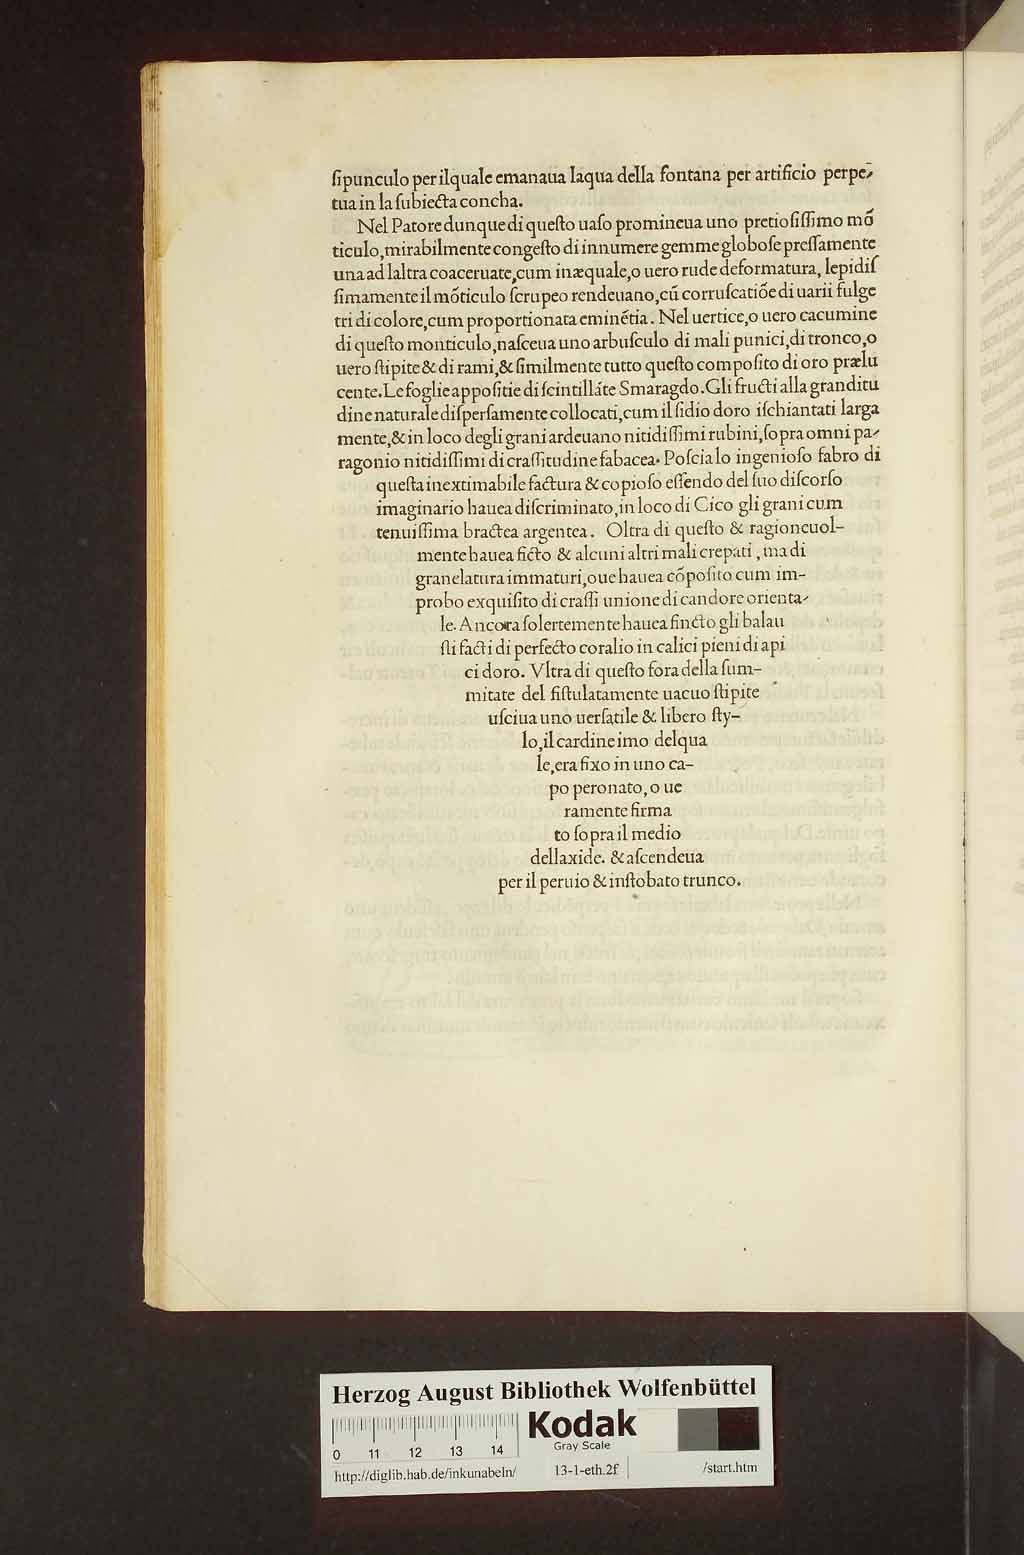 ſipunculo per ilquale emanaua laqua della fontana per artificio perpe-
tua in la ſubiecta concha.
Nel Patore dunque di queſto uaſo promineua uno pretioſiſſimo mõ
ticulo, mirabilmente congeſto di innumere gemme globoſe preſſamente
una ad laltra coaceruate, cum inæquale, o uero rude deformatura, lepidiſ
ſimamente il mõticulo ſcrupeo rendeuano, cũ corruſcatiõe di uarii fulge
tri di colore, cum proportionata eminẽtia. Nel uertice, o uero cacumine
di queſto monticulo, naſceua uno arbuſculo di mali punici, di tronco, o
uero ſtipite & di rami, & ſimilmente tutto queſto compoſito di oro prælu
cente. Le foglie appoſitie di ſcintillãte Smaragdo. Gli fructi alla granditu
dine naturale diſperſamente collocati, cum il ſidio doro iſchiantati larga
mente, & in loco degli grani ardeuano nitidiſſimi rubini, ſopra omni pa-
ragonio nitidiſſimi di craſſitudine fabacea. Poſcia lo ingenioſo fabro di
queſta inextimabile factura & copioſo eſſendo del ſuo diſcorſo
imaginario hauea diſcriminato, in loco di Cico gli grani cum
tenuiſſima bractea argentea. Oltra di queſto & ragioneuol-
mente hauea ficto & alcuni altri mali crepati, ma di
granelatura immaturi, oue hauea cõpoſito cum im-
probo exquiſito di craſſi unione di candore orienta-
le. Ancora ſolertemente hauea fincto gli balau
ſti facti di perfecto coralio in calici pieni di api
ci doro. Vltra di queſto fora della ſum-
mitate del fiſtulatamente uacuo ſtipite
uſciua uno uerſatile & libero ſty-
lo, il cardine imo delqua
le, era fixo in uno ca-
po peronato, o ue
ramente firma
to ſopra il medio
dellaxide. & aſcendeua
per il peruio & inſtobato trunco.
Herzog August Bibliothek Wolfenbüttel
Kodak
Gray Scale
0 11 12 13 14
http://diglib.hab.de/inkunabeln/ 13-1-eth.2f /start.htm